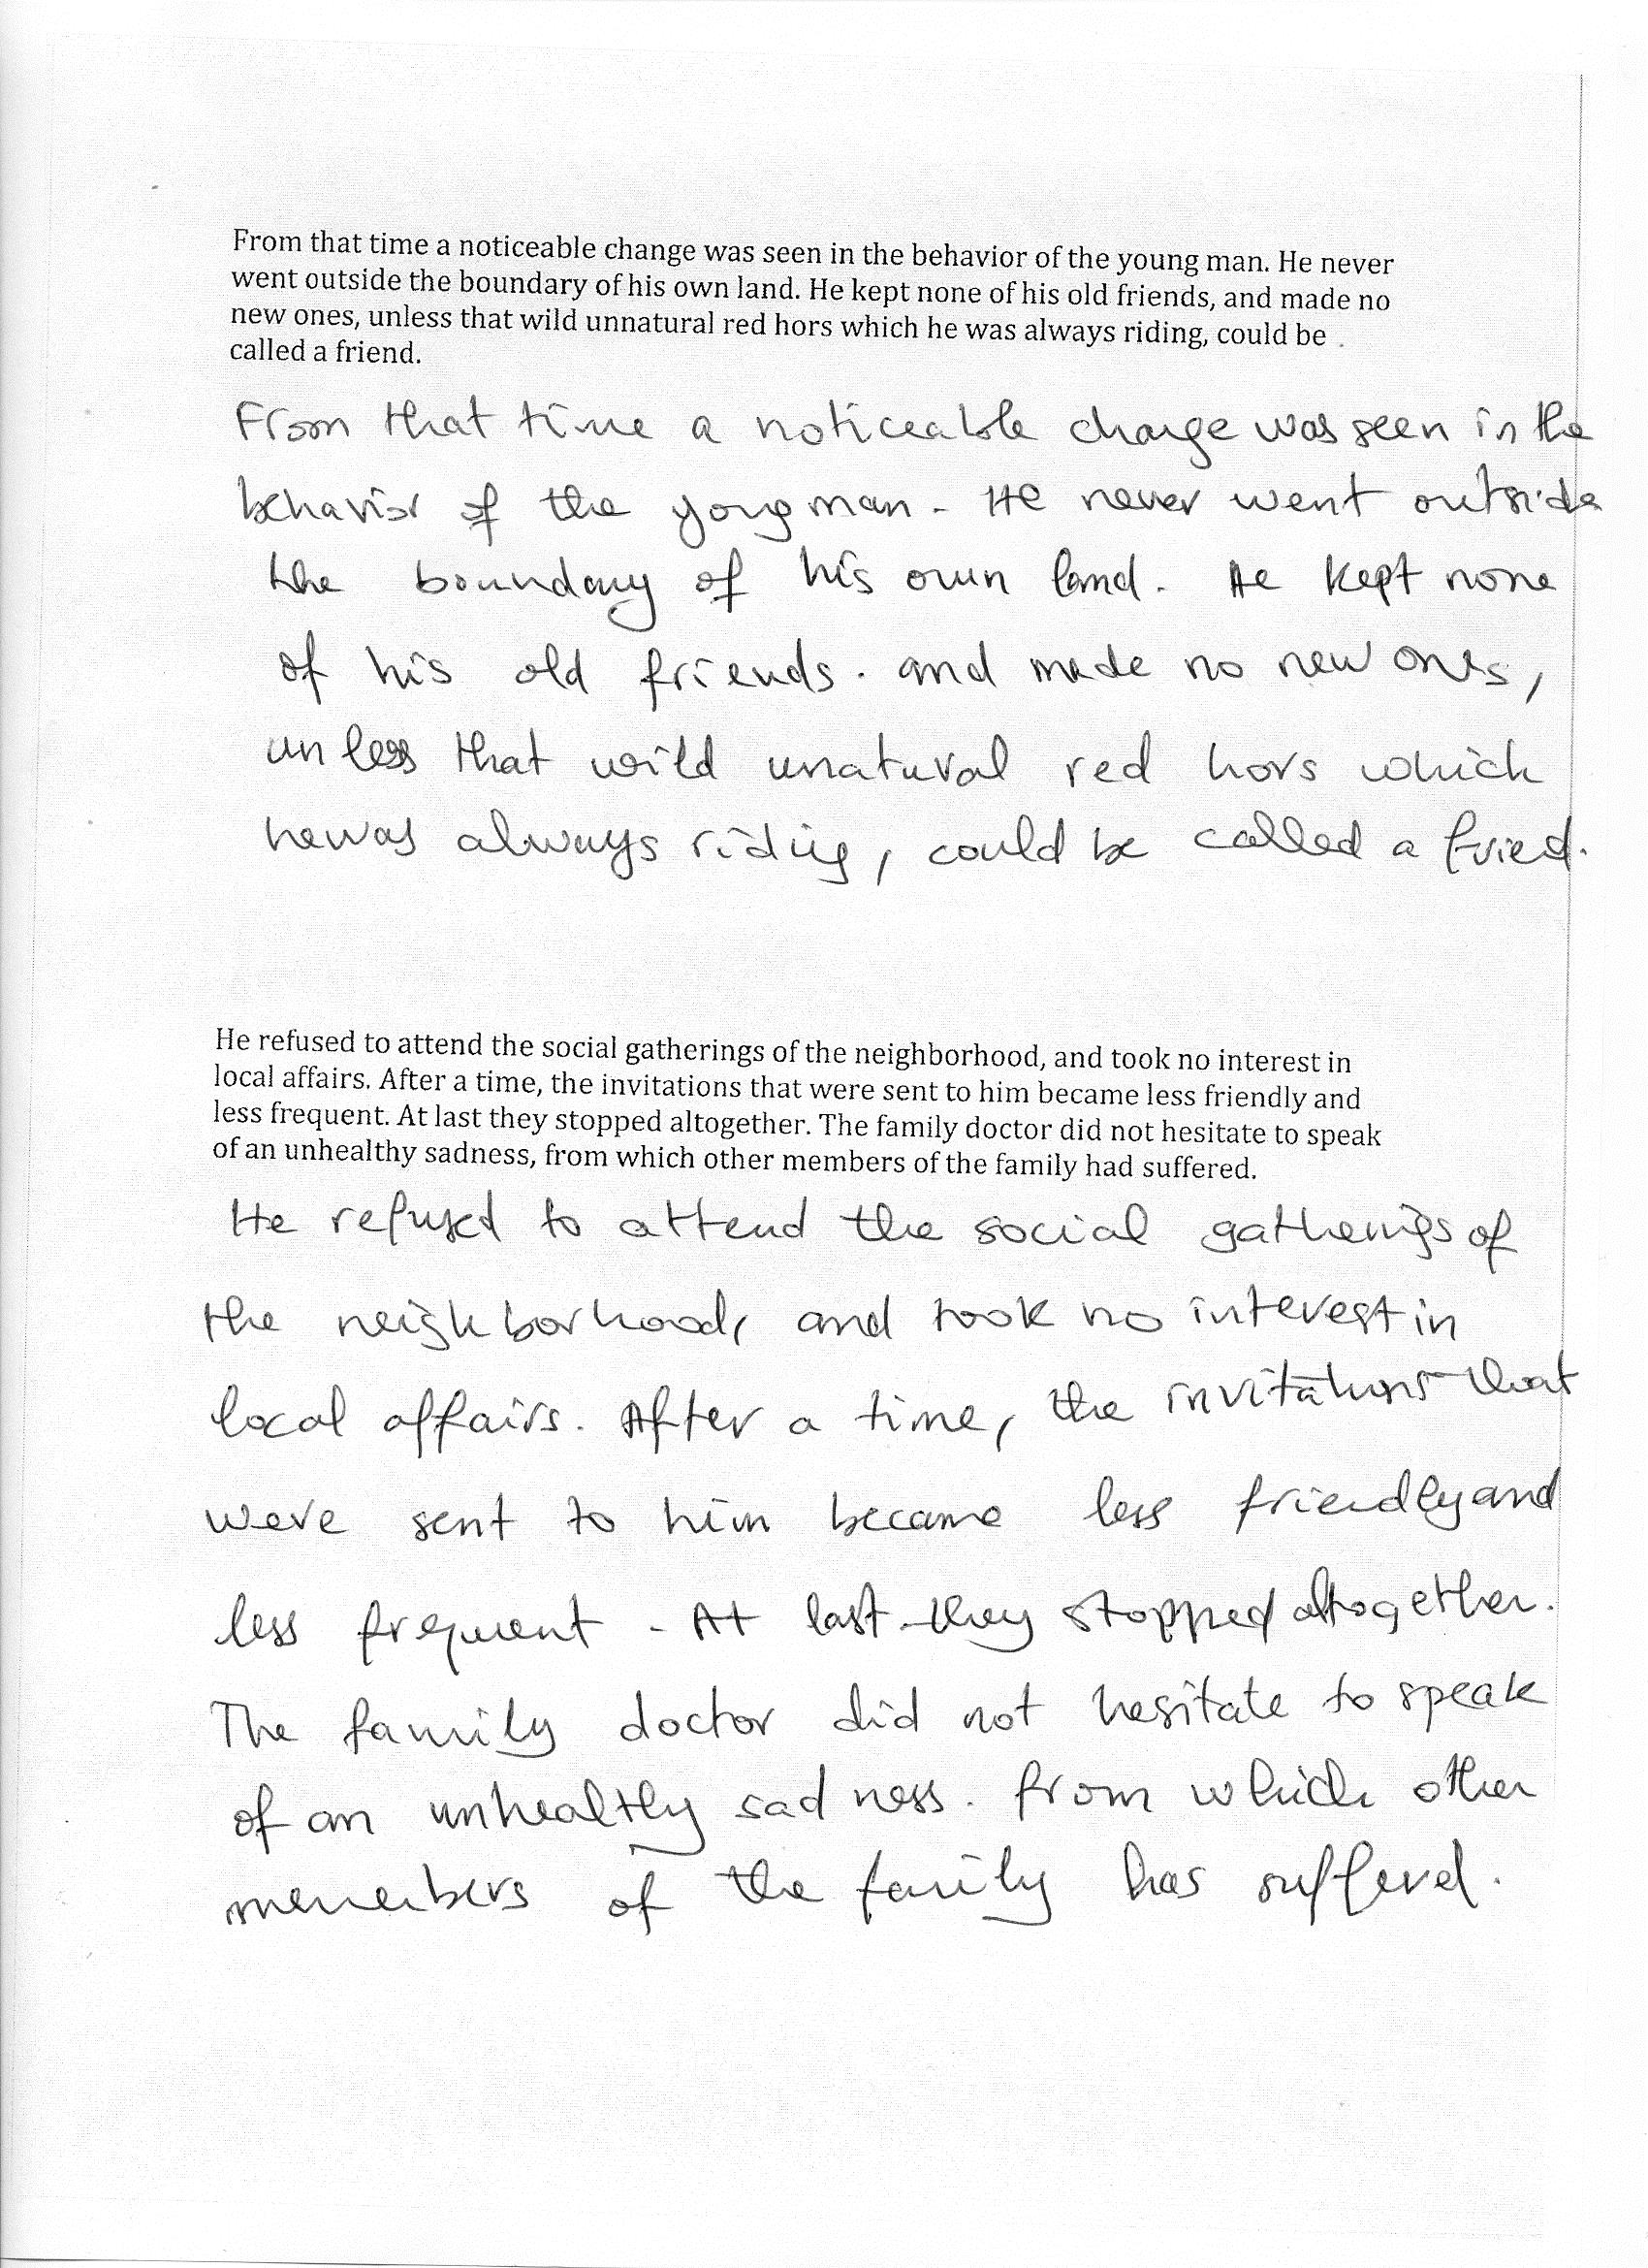 From that time a noticeable change was seen in the behavior of the young man. He never
went outside the boundary of his own land. He kept none of his old friends, and made no
new ones, unless that wild unnatural red hors which he was always riding, could be
called a friend.
From that time a noticeable change was seen in the
behavior of the yong man. He never went outside
the boundary of his own land. He kept none
of his old friends. and made no new ones,
unless that wild unatural red hors which
he was always riding, could be called a fried.
He refused to attend the social gatherings of the neighborhood, and took no interest in
local affairs. After a time, the invitations that were sent to him became less friendly and
less frequent. At last they stopped altogether. The family doctor did not hesitate to speak
of an unhealthy sadness, from which other members of the family had suffered.
He refused to attend the social gatherings of
the neighborhood, and took no interest in
local affairs. After a time, the invitations that
were sent to him became less friendly and
less frequent. At last they stopped altogether.
The family doctor did not hesitate to speak
of an unhealthy sadness. from which other
members of the family has suffered.